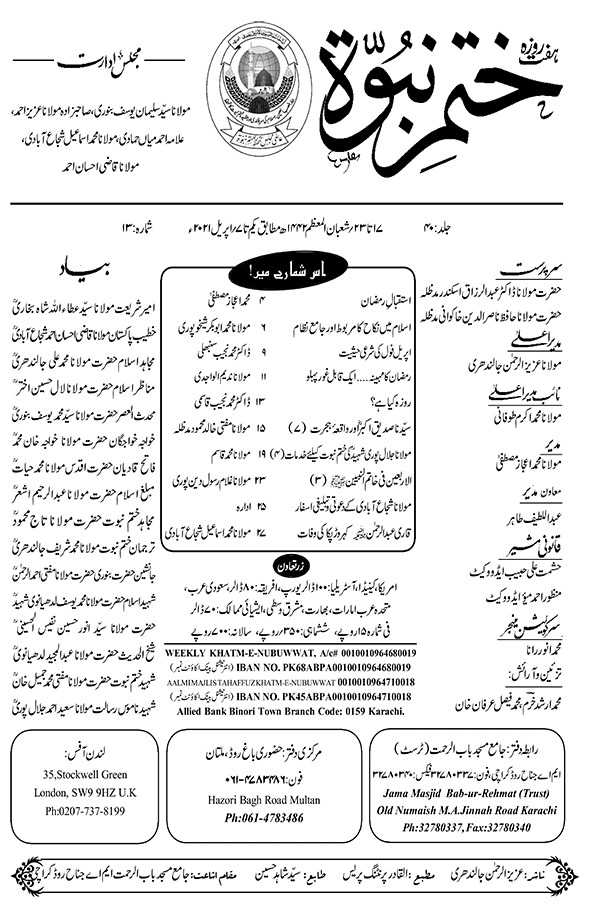 ہفت روزہ
ختم نبوۃ
مجلس ادارت
مولانا سیّد سلیمان یوسف بنوری، صاحبزادہ مولانا عزیز احمد،
علامہ احمد میاں حمادی، مولانا محمد اسماعیل شجاع آبادی،
مولانا قاضی احسان احمد
جلد: ۴۰
۱۷ تا ۲۳؍ شعبان المعظم ۱۴۴۲ھ مطابق یکم تا ۷؍ اپریل ۲۰۲۱ء
شمارہ: ۱۳
سرپرست
حضرت مولانا ڈاکٹر عبدالرزاق اسکندر مدظلہ
حضرت مولانا حافظ ناصر الدین خاکوانی مدظلہ
مدیر اعلیٰ
مولانا عزیز الرحمٰن جالندھری
نائب مدیر اعلیٰ
مولانا محمد اکرم طوفانی
مدیر
مولانا محمد اعجاز مصطفیٰ
معاون مدیر
عبداللطیف طاہر
قانونی مشیر
حشمت علی حبیب ایڈووکیٹ
منظور احمد میؤ ایڈووکیٹ
سرکولیشن منیجر
محمد انور رانا
تزئین و آرائش:
محمد ارشد خرم، محمد فیصل عرفان خان
اس شمارے میں!
استقبالِ رمضان ۴ محمد اعجاز مصطفیٰ
اسلام میں نکاح کا مربوط اور جامع نظام ۶ مولانا محمد ابوبکر شیخوپوری
اپریل فول کی شرعی حیثیت ۹ ڈاکٹر محمد نجیب سنبھلی
رمضان کا مہینہ.... ایک قابل غور پہلو ۱۱ مولانا ندیم الواجدی
روزہ کیا ہے؟ ۱۳ ڈاکٹر محمد نجیب قاسمی
سیّدنا صدیق اکبرؓ اور واقعۂ ہجرت (۷) ۱۵ مولانا مفتی خالد محمود مدظلہ
مولانا جلال پوری شہیدؒ کی ختم نبوت کیلئے خدمات (۴) ۱۹ مولانا محمد قاسم
الاربعین فی خاتم النبیین ﷺ (۳) ۲۳ مولانا غلام رسول دین پوری
مولانا شجاع آبادی کے دعوتی و تبلیغی اسفار ۲۵ ادارہ
قاری عبدالرحمٰنؒ کہروڑپکا کی وفات ۲۷ مولانا محمد اسماعیل شجاع آبادی
زرتعاون
امریکا، کینیڈا، آسٹریلیا: ۱۰۰ ڈالر یورپ، افریقہ: ۸۰ ڈالر، سعودی عرب،
متحدہ عرب امارات، بھارت، مشرق وسطیٰ، ایشیائی ممالک: ۷۰ ڈالر
فی شمارہ ۱۵ روپے، ششماہی: ۳۵۰ روپے، سالانہ: ۷۰۰ روپے
WEEKLY KHATM-E-NUBUWWAT, A/c# 0010010964680019
IBAN NO. PK68ABPA0010010964680019 (انٹرنیشنل بینک اکاؤنٹ نمبر)
AALMI MAJLIS TAHAFFUZ KHATM-E-NUBUWWAT 0010010964710018
IBAN NO. PK45ABPA0010010964710018 (انٹرنیشنل بینک اکاؤنٹ نمبر)
Allied Bank Binori Town Branch Code: 0159 Karachi.
بیاد
امیر شریعت مولانا سیّد عطاء اللہ شاہ بخاریؒ
خطیب پاکستان مولانا قاضی احسان احمد شجاع آبادیؒ
مجاہد اسلام حضرت مولانا محمد علی جالندھریؒ
مناظر اسلام حضرت مولانا لال حسین اخترؒ
محدث العصر حضرت مولانا سیّد محمد یوسف بنوریؒ
خواجہ خواجگان حضرت مولانا خواجہ خان محمدؒ
فاتح قادیان حضرت اقدس مولانا محمد حیاتؒ
مبلغ اسلام حضرت مولانا عبدالرحیم اشعرؒ
مجاہد ختم نبوت حضرت مولانا تاج محمودؒ
ترجمان ختم نبوت حضرت مولانا محمد شریف جالندھریؒ
جانشین حضرت بنوری حضرت مولانا مفتی احمد الرحمٰنؒ
شہید اسلام حضرت مولانا محمد یوسف لدھیانوی شہیدؒ
حضرت مولانا سیّد انور حسین نفیس الحسینیؒ
شیخ الحدیث حضرت مولانا عبدالمجید لدھیانویؒ
شہید ختم نبوت حضرت مولانا مفتی محمد جمیل خانؒ
شہید ناموس رسالت مولانا سعید احمد جلال پوریؒ
رابطہ دفتر: جامع مسجد باب الرحمت (ٹرسٹ)
ایم اے جناح روڈ کراچی، فون: ۳۲۷۸۰۳۳۷ فیکس: ۳۲۷۸۰۳۴۰
Jama Masjid Bab-ur-Rehmat (Trust)
Old Numaish M.A.Jinnah Road Karachi
Ph:32780337, Fax:32780340
مرکزی دفتر: حضوری باغ روڈ، ملتان
فون: ۰۶۱-۴۷۸۳۴۸۶
Hazori Bagh Road Multan
Ph:061-4783486
لندن آفس:
35,Stockwell Green
London, SW9 9HZ U.K
Ph:0207-737-8199
ناشر: عزیز الرحمٰن جالندھری مطبع: القادر پرنٹنگ پریس طابع: سیّد شاہد حسین مقام اشاعت: جامع مسجد باب الرحمت ایم اے جناح روڈ کراچی